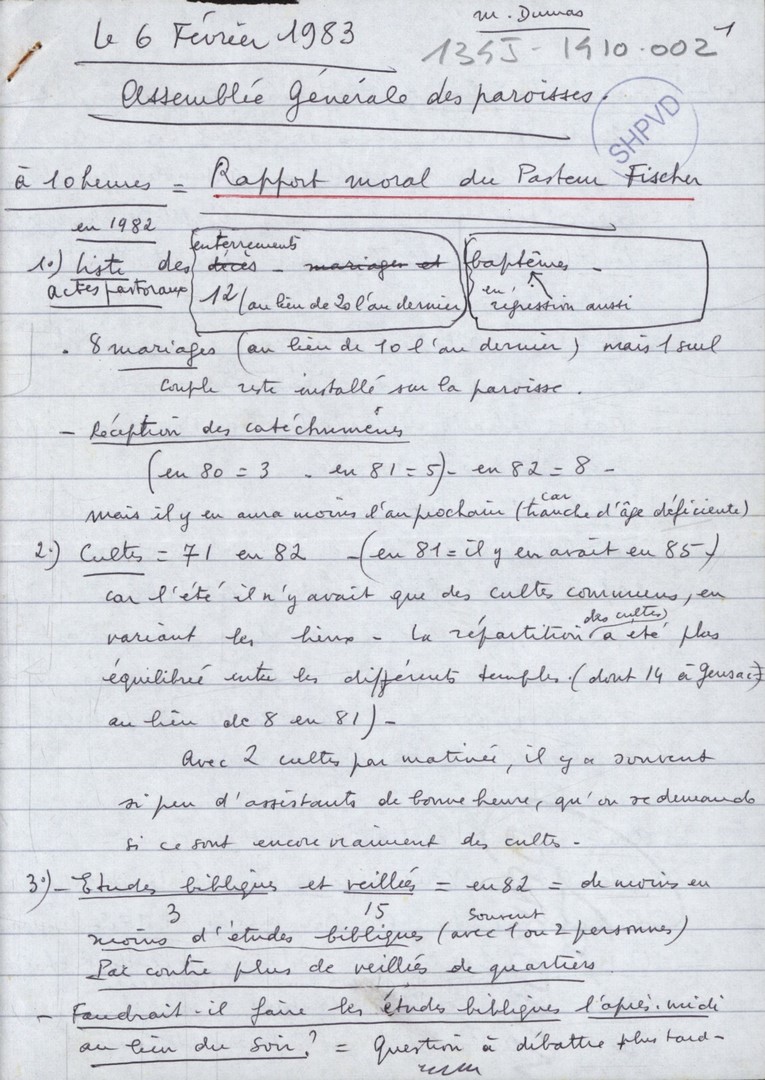 M. Dumas
1
Le 6 Février 1983
134J-1910.002
Assemblée Générale des paroisses.
SHPVD
à 10 heures = Rapport moral du Pasteur Fischer
en 1982
enterrements
1°) liste des décès - mariages et baptêmes -
actes pastoraux 12 (au lieu de 20 l'an dernier en régression aussi
. 8 mariages (au lieu de 10 l'an dernier) mais 1 seul
couple reste installé sur la paroisse.
- Réception des catéchumènes
(en 80 = 3 - en 81 = 5) - en 82 = 8 -
mais il y en aura moins l'an prochain (car tranche d'âge déficiente)
2°) Cultes = 71 en 82 - (en 81 = il y en avait eu 85)
car l'été il n'y avait que des cultes communs, en
variant les lieux - La répartition des cultes a été plus
équilibrée entre les différents temples. (dont 14 à Gensac
au lieu de 8 en 81) -
Avec 2 cultes par matinée, il y a souvent
si peu d'assistants de bonne heure, qu'on se demande
si ce sont encore vraiment des cultes -
3°) - Etudes bibliques et veillées = en 82 = de moins en
3 15 souvent
moins d'études bibliques (avec 1 ou 2 personnes)
Par contre plus de veillées de quartiers
- Faudrait-il faire les études bibliques l'après-midi
au lieu du soir ? = Question à débattre plus tard -